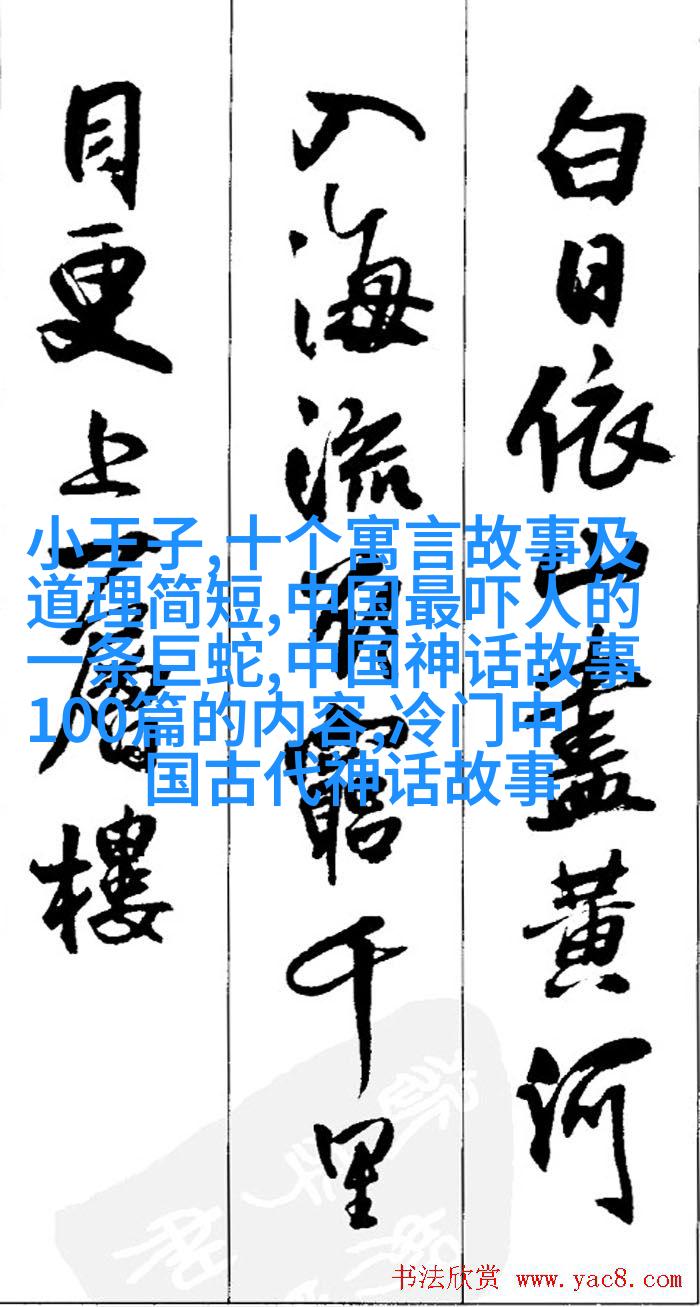 白日依山盡黄河
入海流欲窮千里
目更上一層樓
小王子,十个寓言故事及
道理简短,中国最吓人的
一条巨蛇,中国神话故事
100篇的内容,冷门中
国古代神话故事
书法欣赏 www.yac8.com